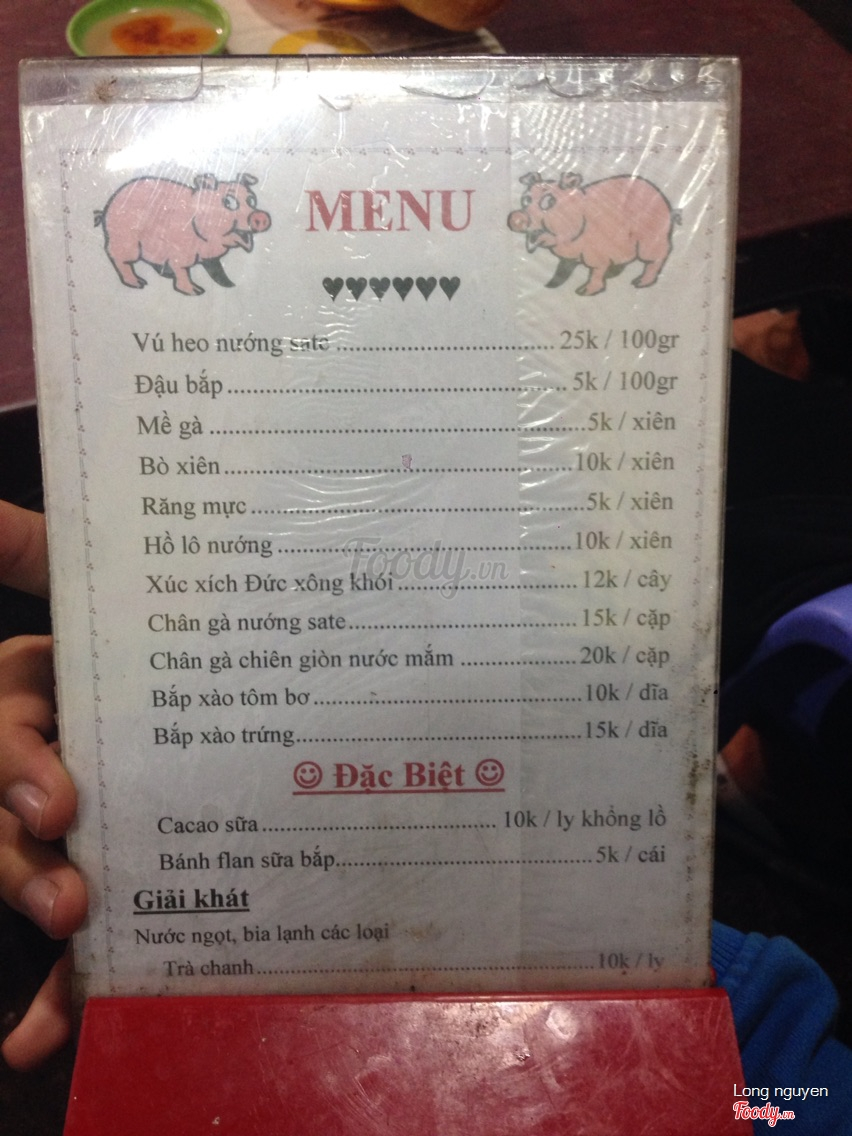 MENU
♥♥♥♥♥♥
Vú heo nướng sate ........ 25k / 100gr
Đậu bắp ........ 5k / 100gr
Mề gà ........ 5k / xiên
Bò xiên ........ 10k / xiên
Răng mực ........ 5k / xiên
Hồ lô nướng ........ 10k / xiên
Xúc xích Đức xông khói ........ 12k / cây
Chân gà nướng sate ........ 15k / cặp
Chân gà chiên giòn nước mắm ........ 20k / cặp
Bắp xào tôm bơ ........ 10k / dĩa
Bắp xào trứng ........ 15k / dĩa
☺ Đặc Biệt ☺
Cacao sữa ........ 10k / ly khổng lồ
Bánh flan sữa bắp ........ 5k / cái
Giải khát
Nước ngọt, bia lạnh các loại
Trà chanh ........ 10k / ly
Foody.vn
Long nguyen
Foody.vn